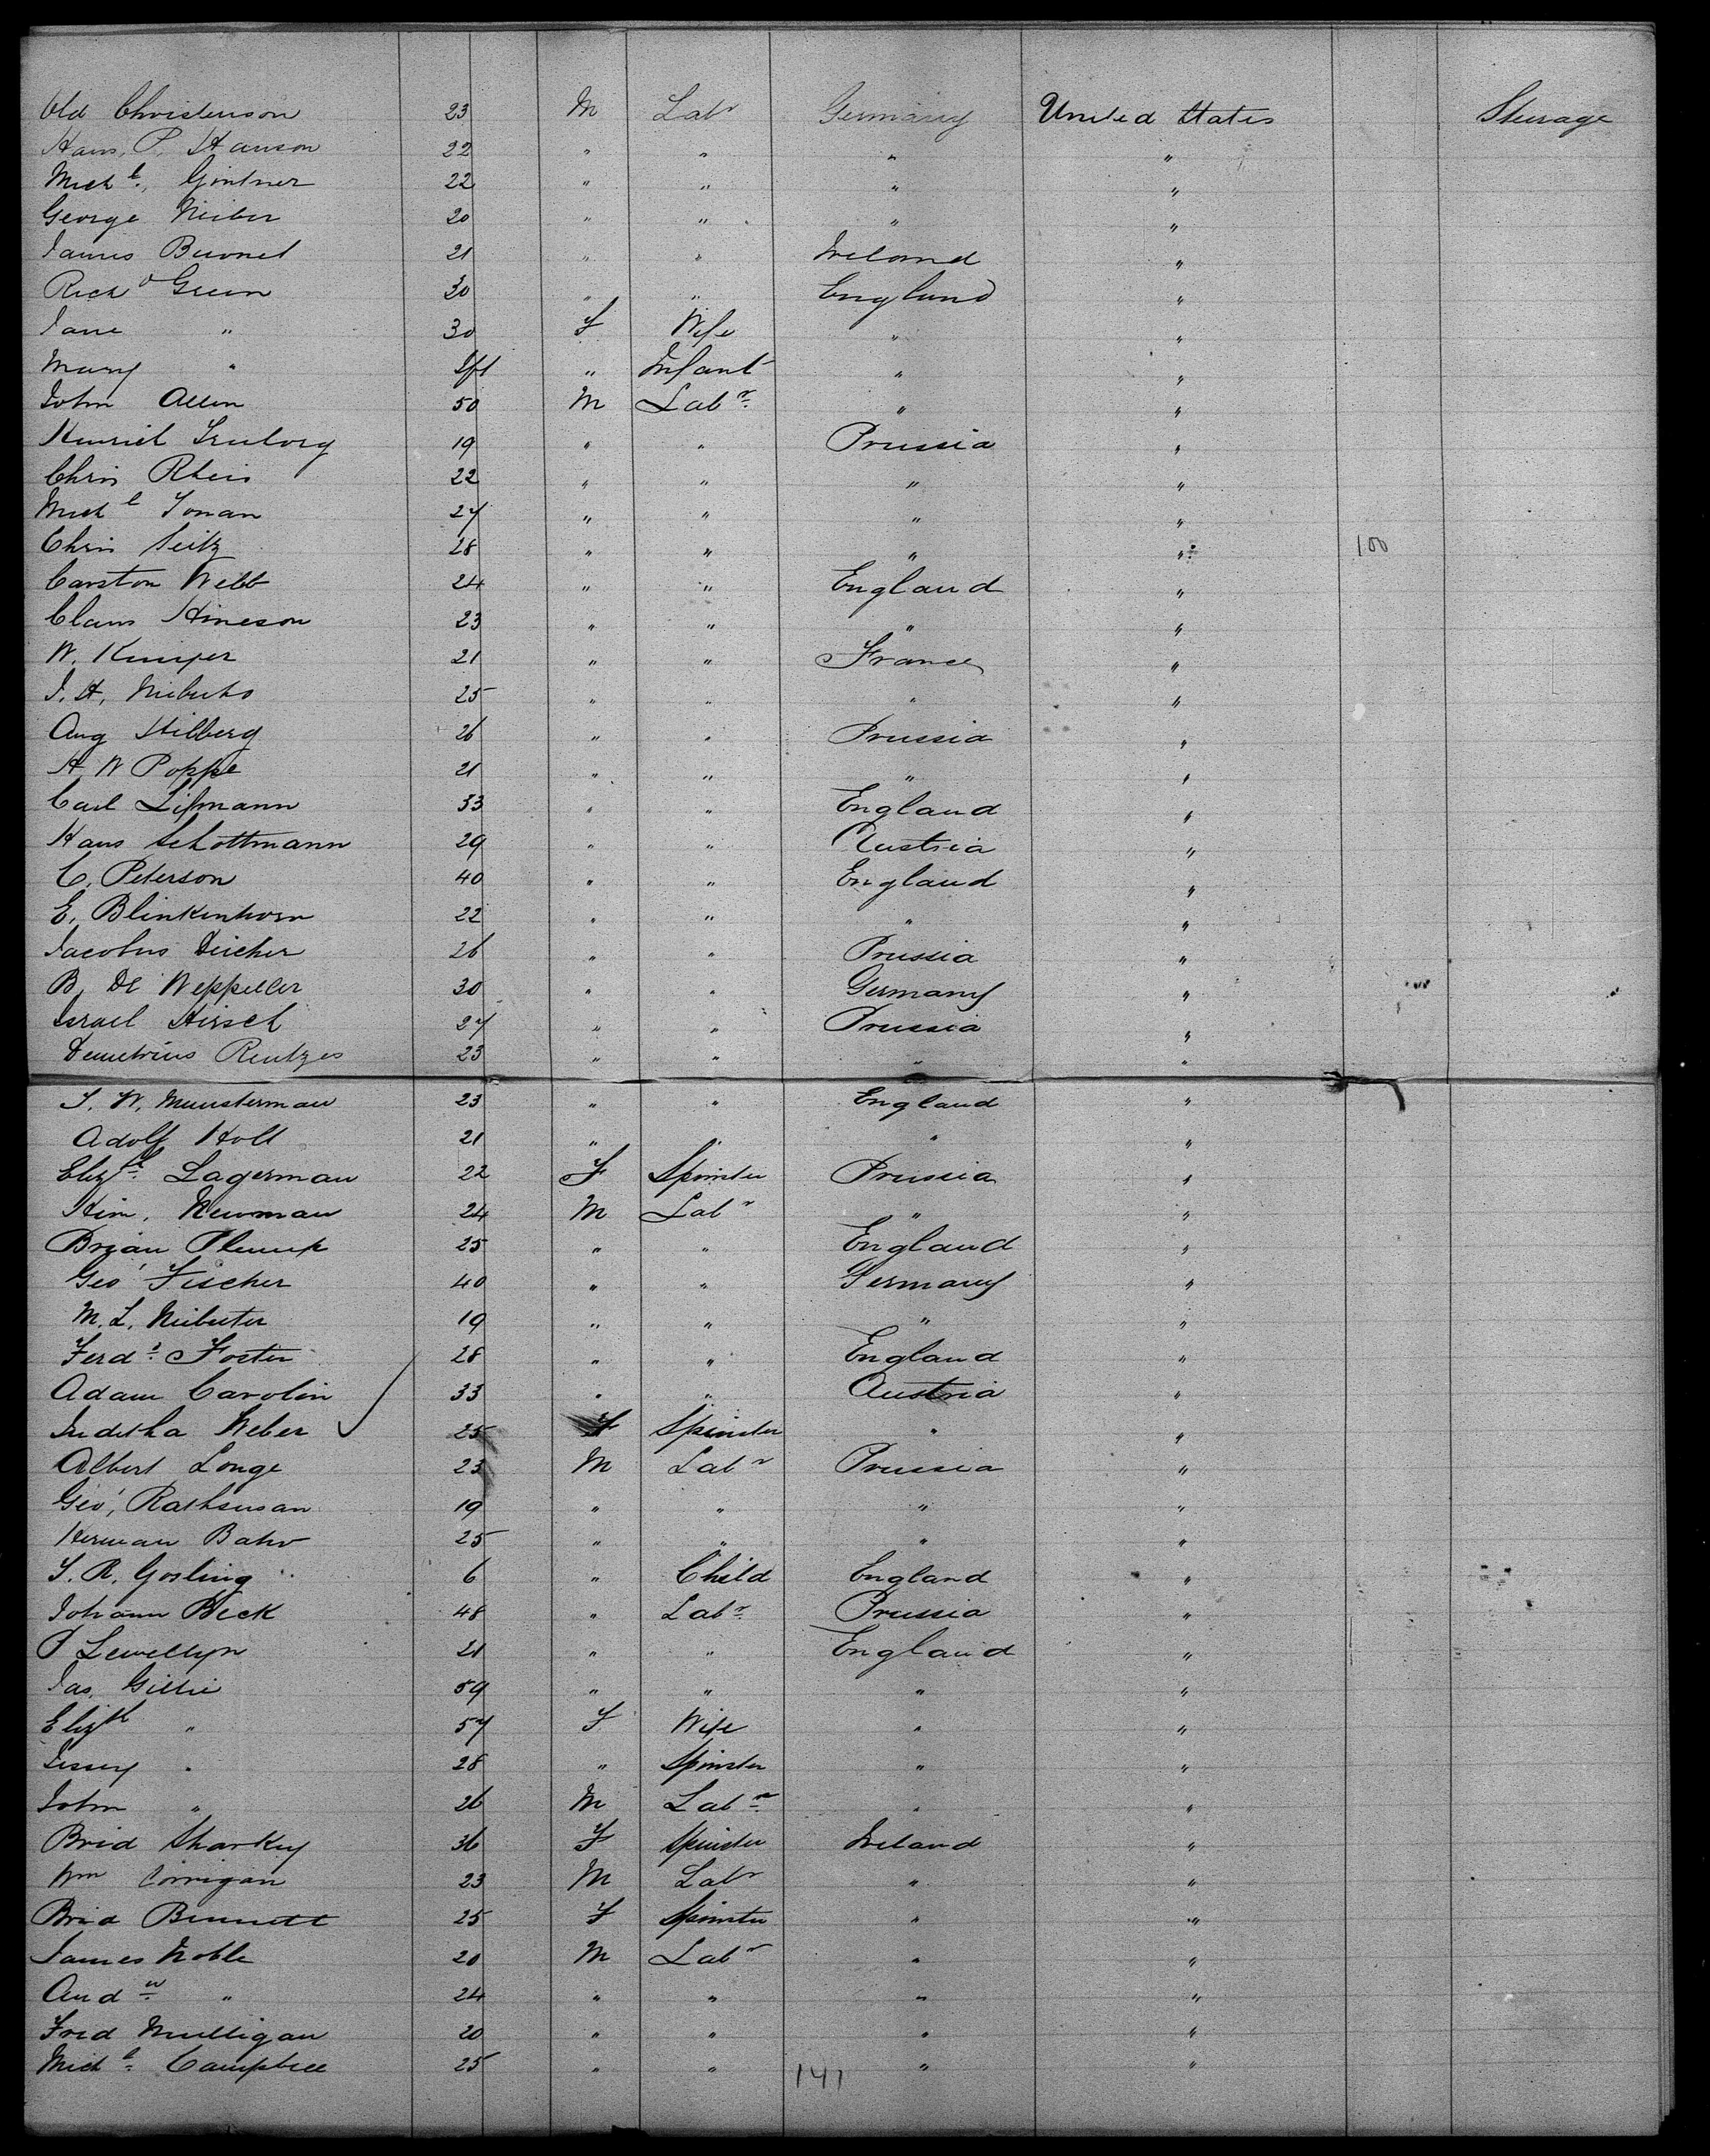 Old Christenson 23 M Labr Germany United States Steerage
Hans, P. Hanson 22 " " " "
Michl., Gintner 22 " " " "
George Nieber 20 " " " "
James Burnet 21 " " Ireland "
Richd Green 30 " " England "
Jane " 30 F Wife " "
Mary " Inft " Infant " "
John Allen 50 M Labr. " "
19 " " Prussia "
Chris Rheis 22 " " " "
Michl 27 " " " "
Chris Seitz 28 " " " " 100
Carston Webb 24 " " England "
Claus Hineson 23 " " " "
W. 21 " " France "
J. H. 25 " " " "
Aug Hilberg 26 " " Prussia "
H W Poppe 21 " " " "
Carl 33 " " England "
Hans Schottmann 29 " " Austria "
C. Peterson 40 " " England "
E. Blinkenhorn 22 " " " "
Jacobus Deicher 26 " " Prussia "
B. De Weppeller 30 " " Germany "
Israel Hirsch 27 " " Prussia "
Demetrius Rentzes 23 " " " "
J. W. Munsterman 23 " " England "
Adolf Holl 21 " " " "
Elizth. Lagerman 22 F Spinster Prussia "
Hin. Newman 24 M Labr " "
Brian Plump 25 " " England "
Geo' Fischer 40 " " Germany "
M. L. 19 " " " "
Ferd. Foster 28 " " England "
Adam Carolin 33 " " Austria "
Juditha Weber 25 F Spinster " "
Albert Longe 23 M Labr Prussia "
Geo', Rathsusan 19 " " " "
Herman Bahr 25 " " " "
J. R. Gosling 6 " Child England "
Johann Beck 48 " Labr. Prussia "
P Lewellyn 21 " " England "
Jas. Gillie 59 " " " "
Elizth " 57 F Wife " "
Jessey " 28 " Spinster " "
John " 26 M Labr. " "
Brid Sharkey 36 F Spinster Ireland "
Wm Corrigan 23 M Labr " "
Brid Bennett 25 F Spinster " "
James Noble 20 M Labr " "
Andw. " 24 " " " "
Fred Mulligan 20 " " " "
Michl. Campbell 25 " " " "
141